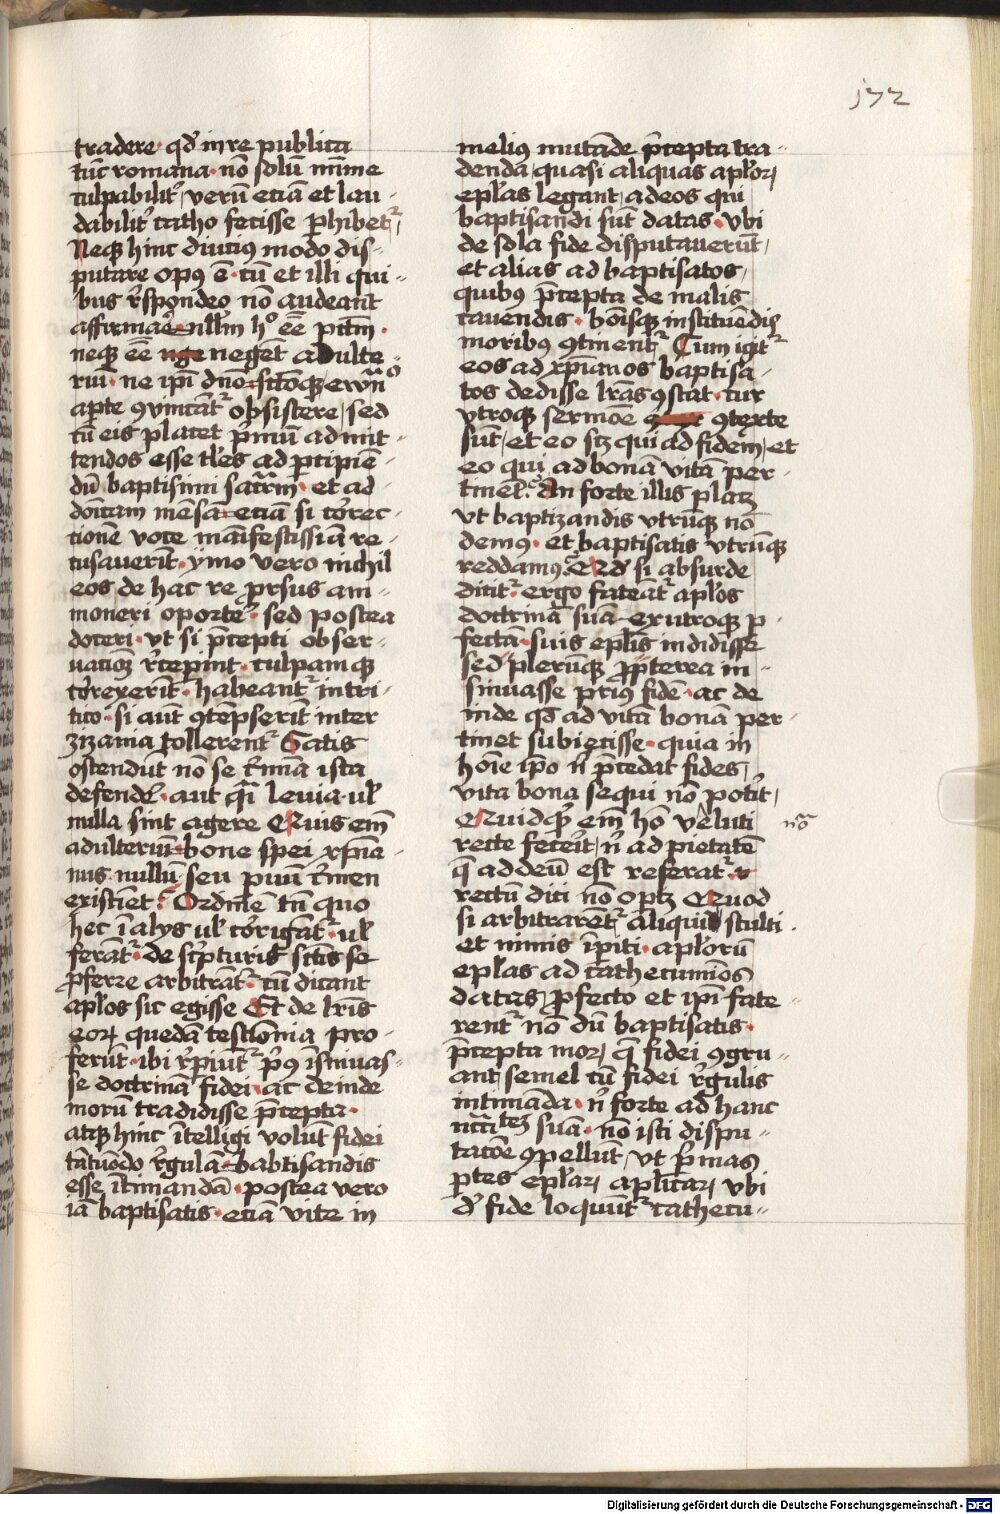 172
tradere· qd' in re publica
tūc romana· nō solū mīme
culpabilit', verū etiā et lau-
dabilit' catho fecisse ꝑhibet',
Neqꝫ hinc diutius modo dis-
putare opꝰ ē· cū et illi qui-
bus r̄spondeo nō audeant
affirmare· nll'm hͦ eē pctm̄·
neqꝫ eē negēt adulte-
riū· ne ip̄i dn̄o
aperte ꝯvincāt' obsistere, sed
tn̄ eis placet p̄mū admit-
tendos esse tl'es ad ꝑcipiē-
dū baptismi sac̄rm̄· et ad
dn̄icam mēsā· etiā si correc-
tionē voce manifestissīa re-
cusaverīt· ymo vero nichil
eos de hac re prorsus am-
moneri oporte'· sed postea
doceri· vt si p̄cepti obser-
uatioꝫ r̄ceperint· culpamqꝫ
correxerīt· habeant' in tri-
tico· si aut̄ ꝯtēpserīt inter
zizania tollerent' Satis
ostendūt nō se c̄mīa ista
defend'e· aut q̄si levia· ul'
nulla sint agere Quis em̄
adulteriū· bone spei xp̄ia-
nus· nullū seu parvū c̄men
existiet? Ordinē tn̄ quo
hec ī alijs ul' corrigāt'· ul'
ferāt'· de sc̄pturis sc̄tis se
ꝓferre arbitrāt'· cū dicant
apl'os sic egisse Et de lr̄is
eoꝝ quedā testīonia pro-
ferūt· ibi r̄piunt' pꝰ īsinuas-
se doctrinā fidei· ac deinde
morū tradidisse p̄cepta·
atqꝫ hinc ītelligi volūt fidei
tātūodo r̄gulā· babtisandis
esse ītimandā· postea vero
iā baptisatis· etiā vite in
melius mutāde p̄cepta tra-
denda, quasi aliquas apl'oꝝ
epl'as legant, ad eos qui
baptisandi sūt datas· vbi
de sola fide disputauerūt,
et alias ad baptisatos,
quibꝰ p̄cepta de malis
cauendis· bōisqꝫ instituēdis
moribꝰ ꝯtinent' Cum igit'
eos ad xp̄ianos baptisa-
tos dedisse lr̄as ꝯstat· cur
vtroqꝫ sermōe ꝯtexte
sūt, et eo scꝫ qui ad fidem, et
eo qui ad bonā vitā per-
tinet? An forte illis placꝫ
vt baptizandis vtrūqꝫ nō
demꝰ· et baptisatis vtrūqꝫ
reddamꝰ? Qd' si absurde
dicit'· ergo fateāt' apl'os
doctrinā suā· ex utroqꝫ p-
fectā· suis epl'is indidisse
sed plerūqꝫ ꝓpterea in-
sinuasse priꝰ fidē· ac de
inde qd' ad vitā bonā per-
tinet subiecisse· quia in
hoīe ip̄o n' p̄cedat fides,
vita bona sequi nō pot'it,
Quidqd' em̄ hō veluti nōͣ
recte fecerit, n' ad pietatē
q̄ ad deū est referat'·
rectū dici nō optꝫ Quod
si arbitrarēt' aliqui stulti·
et nimis īperiti· apl'orū
epl'as ad cathecuminos
datas, profecto et ip̄i fate-
rent' nō dū baptisatis·
p̄cepta moꝝ q̄ fidei ꝯgru-
ant, semel cū fidei r̄gulis
intimāda· n' forte ad hanc
nc̄citeꝫ suā· nō isti dispu-
tacōe ꝯpellūt, vt p̄mas
ꝑtes epl'aꝝ apl'icaꝝ vbi
d' fide loquūt' cathecu-
Digitalisierung gefördert durch die Deutsche Forschungsgemeinschaft - DFG